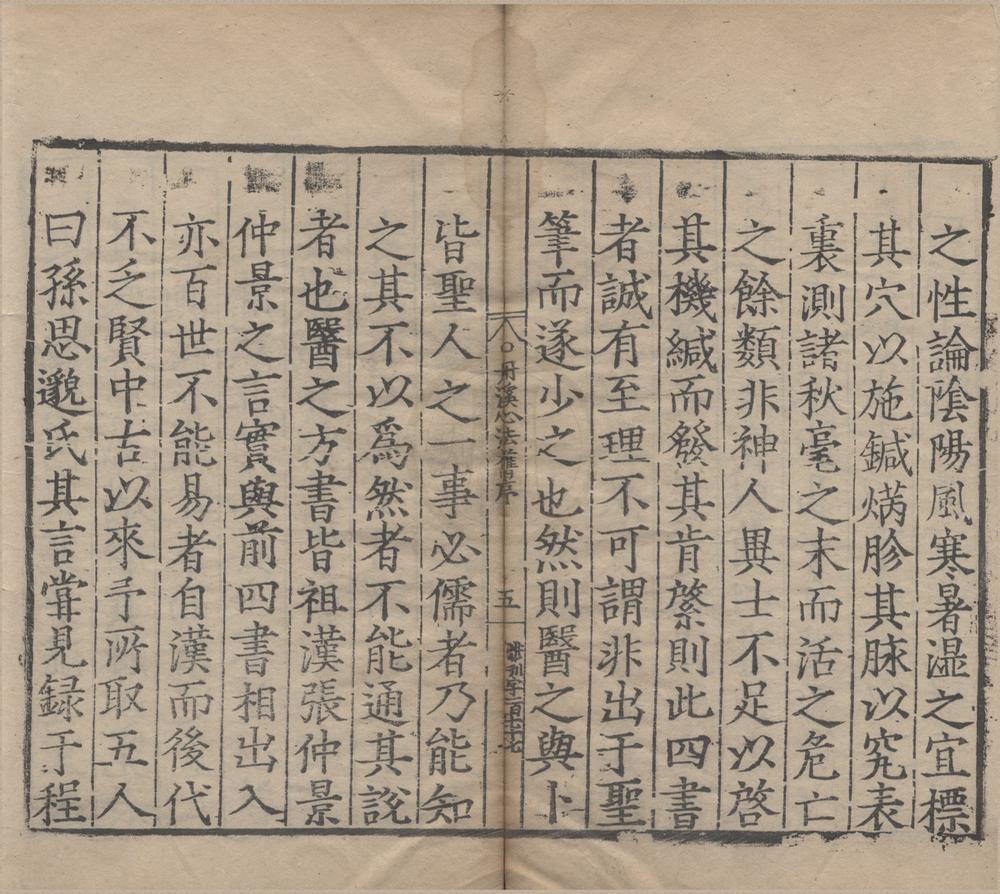 之性論陰陽風寒暑湿之宜標
其穴以施鍼焫胗其脉以究表
裏測諸秋毫之末而活之危亡
之餘類非神人異士不足以啓
其機緘而發其肯綮則此四書
者誠有至理不可謂非出于聖
筆而遂少之也然則醫之與卜
丹溪心法舊序
五
百七十七
皆聖人之一事必儒者乃能知
之其不以為然者不能通其説
者也醫之方書皆祖漢張仲景
仲景之言實與前四書相出入
亦百世不能易者自漢而後代
不乏賢中古以來予所取五人
曰孫思邈氏其言嘗見録于程